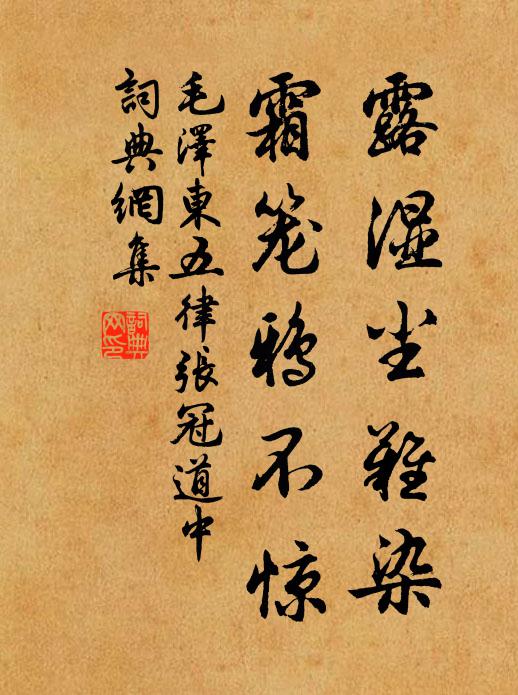 露湿尘難染
霜笼鸦不惊
毛澤東五律張冠道中
詞典網集
詞典网印